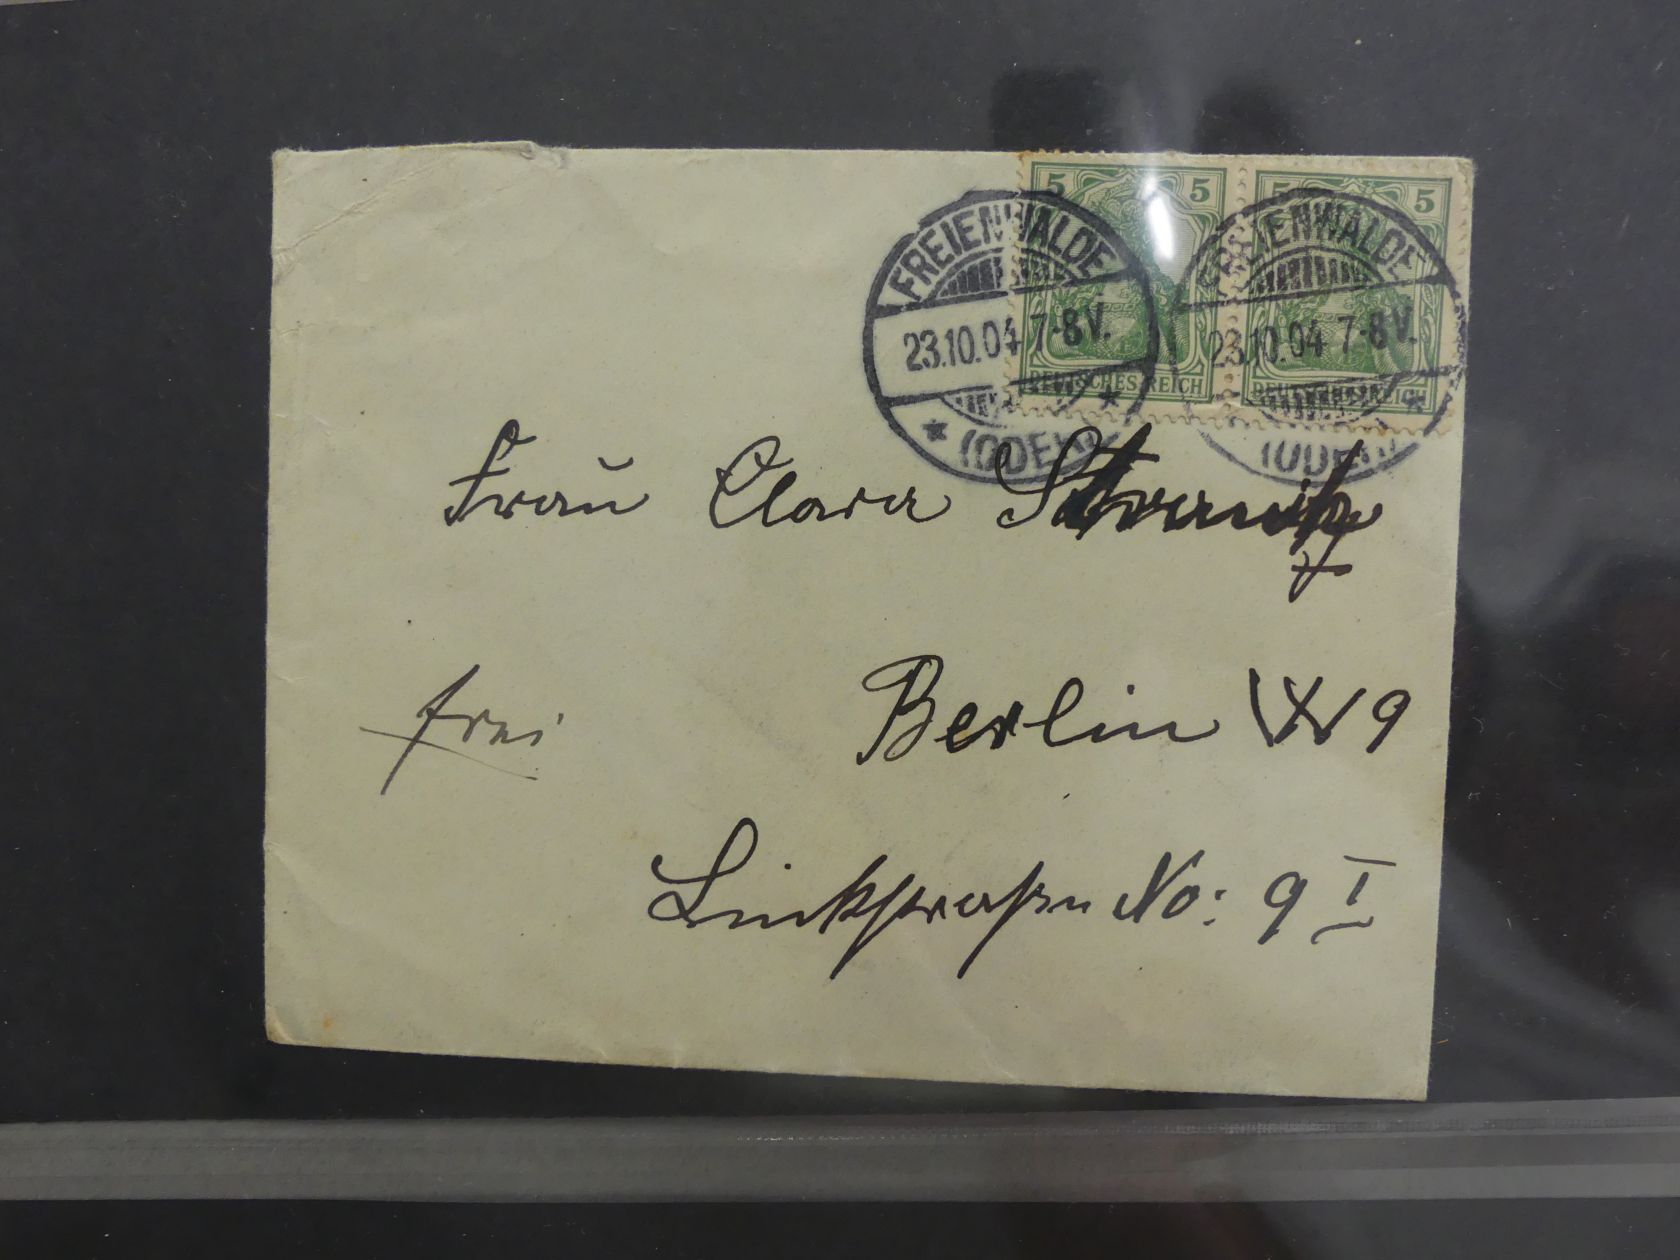 5 5 5 5
FREIENWALDE FREIENWALDE
23.10.04 7-8V. 23.10.04 7-8V.
DEUTSCHES REICH DEUTSCHES REICH
* (ODER) * (ODER) *
Frau Clara
frei Berlin W 9
Linkstraße No: 9 I